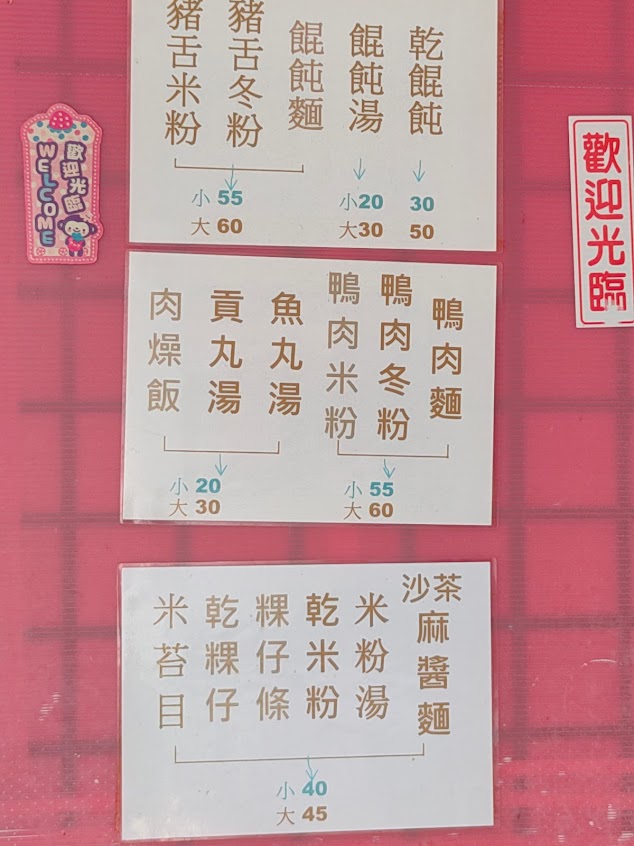 乾餛飩
餛飩湯
餛飩麵
豬舌冬粉
豬舌米粉
30
50
小20
大30
小 55
大 60
歡迎光臨
WELCOME
歡迎光臨
鴨肉麵
鴨肉冬粉
鴨肉米粉
魚丸湯
貢丸湯
肉燥飯
小 55
大 60
小 20
大 30
沙茶
麻醬麵
米粉湯
乾米粉
粿仔條
乾粿仔
米苔目
小 40
大 45